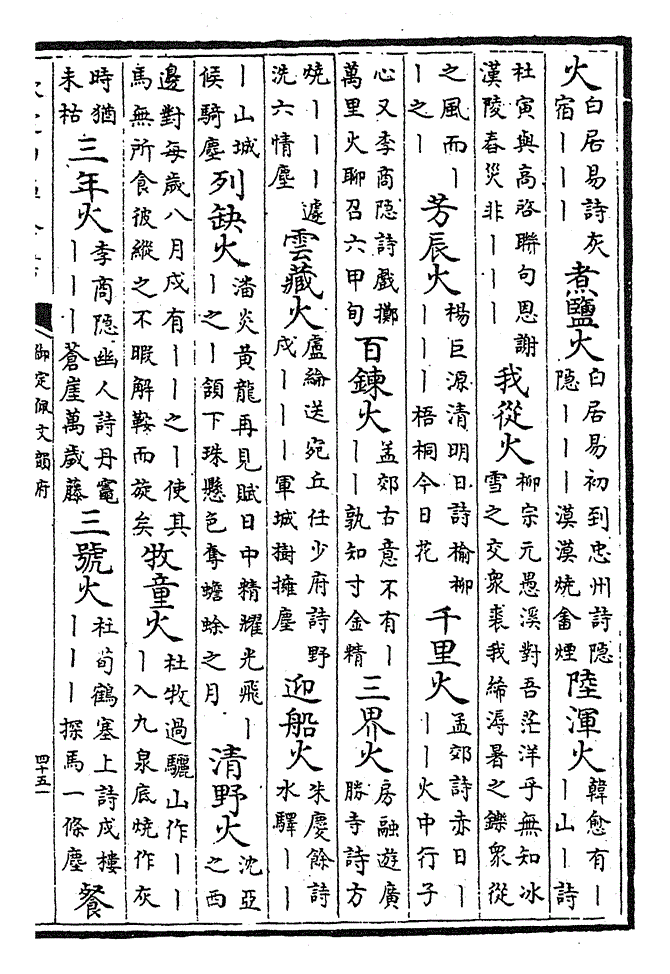 火白居易詩灰宿｜｜｜煮鹽火白居易初到忠州詩隐隐｜｜｜漠漠燒畬煙陸渾火韓愈有｜｜山｜詩
杜寅與高啓聯句恩謝漢陵春災非｜｜｜我從火柳宗元愚溪對吾茫洋乎無知冰雪之交衆裘我絺溽暑之鑠衆從
之風而｜｜之｜芳辰火楊巨源清明日詩榆柳｜｜｜梧桐今日花千里火孟郊詩赤日｜｜｜火中行子
心又李商隐詩戲擲萬里火聊召六甲旬百鍊火孟郊古意不有｜｜｜孰知寸金精三界火房融遊廣勝寺詩方
燒｜｜｜遽洗六情塵雲藏火盧綸送宛丘任少府詩野戍｜｜｜軍城樹擁塵迎船火朱慶餘詩水驛｜｜
｜山城候騎塵列缺火潘炎黄龍再見賦日中精耀光飛｜｜之｜頷下珠懸色奪蟾蜍之月清野火沈亞之西
邊對每歲八月戍有｜｜之｜使其馬無所食彼縱之不暇解鞍而旋矣牧童火杜牧過驪山作｜｜｜入九泉底燒作灰
時猶未枯三年火李商隐幽人詩丹竈｜｜｜蒼崖萬歲藤三號火杜荀鶴塞上詩戍樓｜｜｜探馬一條塵餐
御定佩文韻府